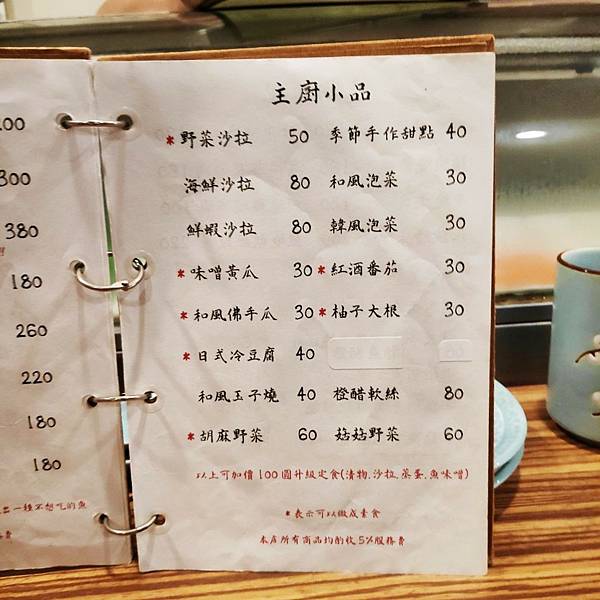 主廚小品
*野菜沙拉 50 季節手作甜點 40
海鮮沙拉 80 和風泡菜 30
鮮蝦沙拉 80 韓風泡菜 30
*味噌黃瓜 30 *紅酒番茄 30
*和風佛手瓜 30 *柚子大根 30
*日式冷豆腐 40
和風玉子燒 40 橙醋軟絲 80
*胡麻野菜 60 菇菇野菜 60
以上可加價100圓升級定食(漬物.沙拉.蒸蛋.魚味噌)
*表示可以做成素食
本店所有商品均酌收5%服務費
200
300
380
180
260
220
180
180
一種不想吃的魚
務費